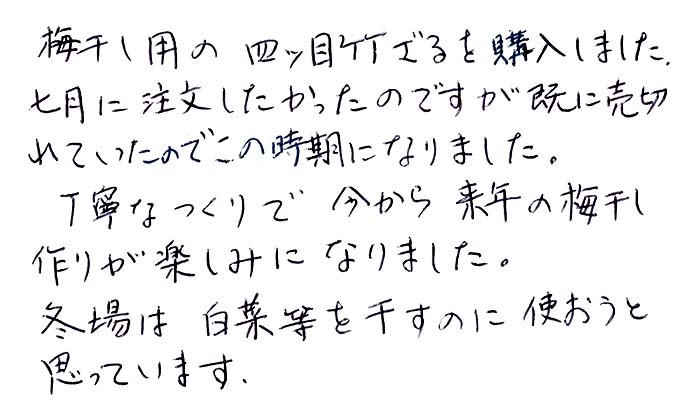 梅干し用の 四ッ目竹ざるを購入しました.
七月に注文したかったのですが既に売切
れていたのでこの時期になりました。
丁寧なつくりで 今から 来年の梅干し
作りが楽しみになりました。
冬場は 白菜等を干すのに使おうと
思っています.